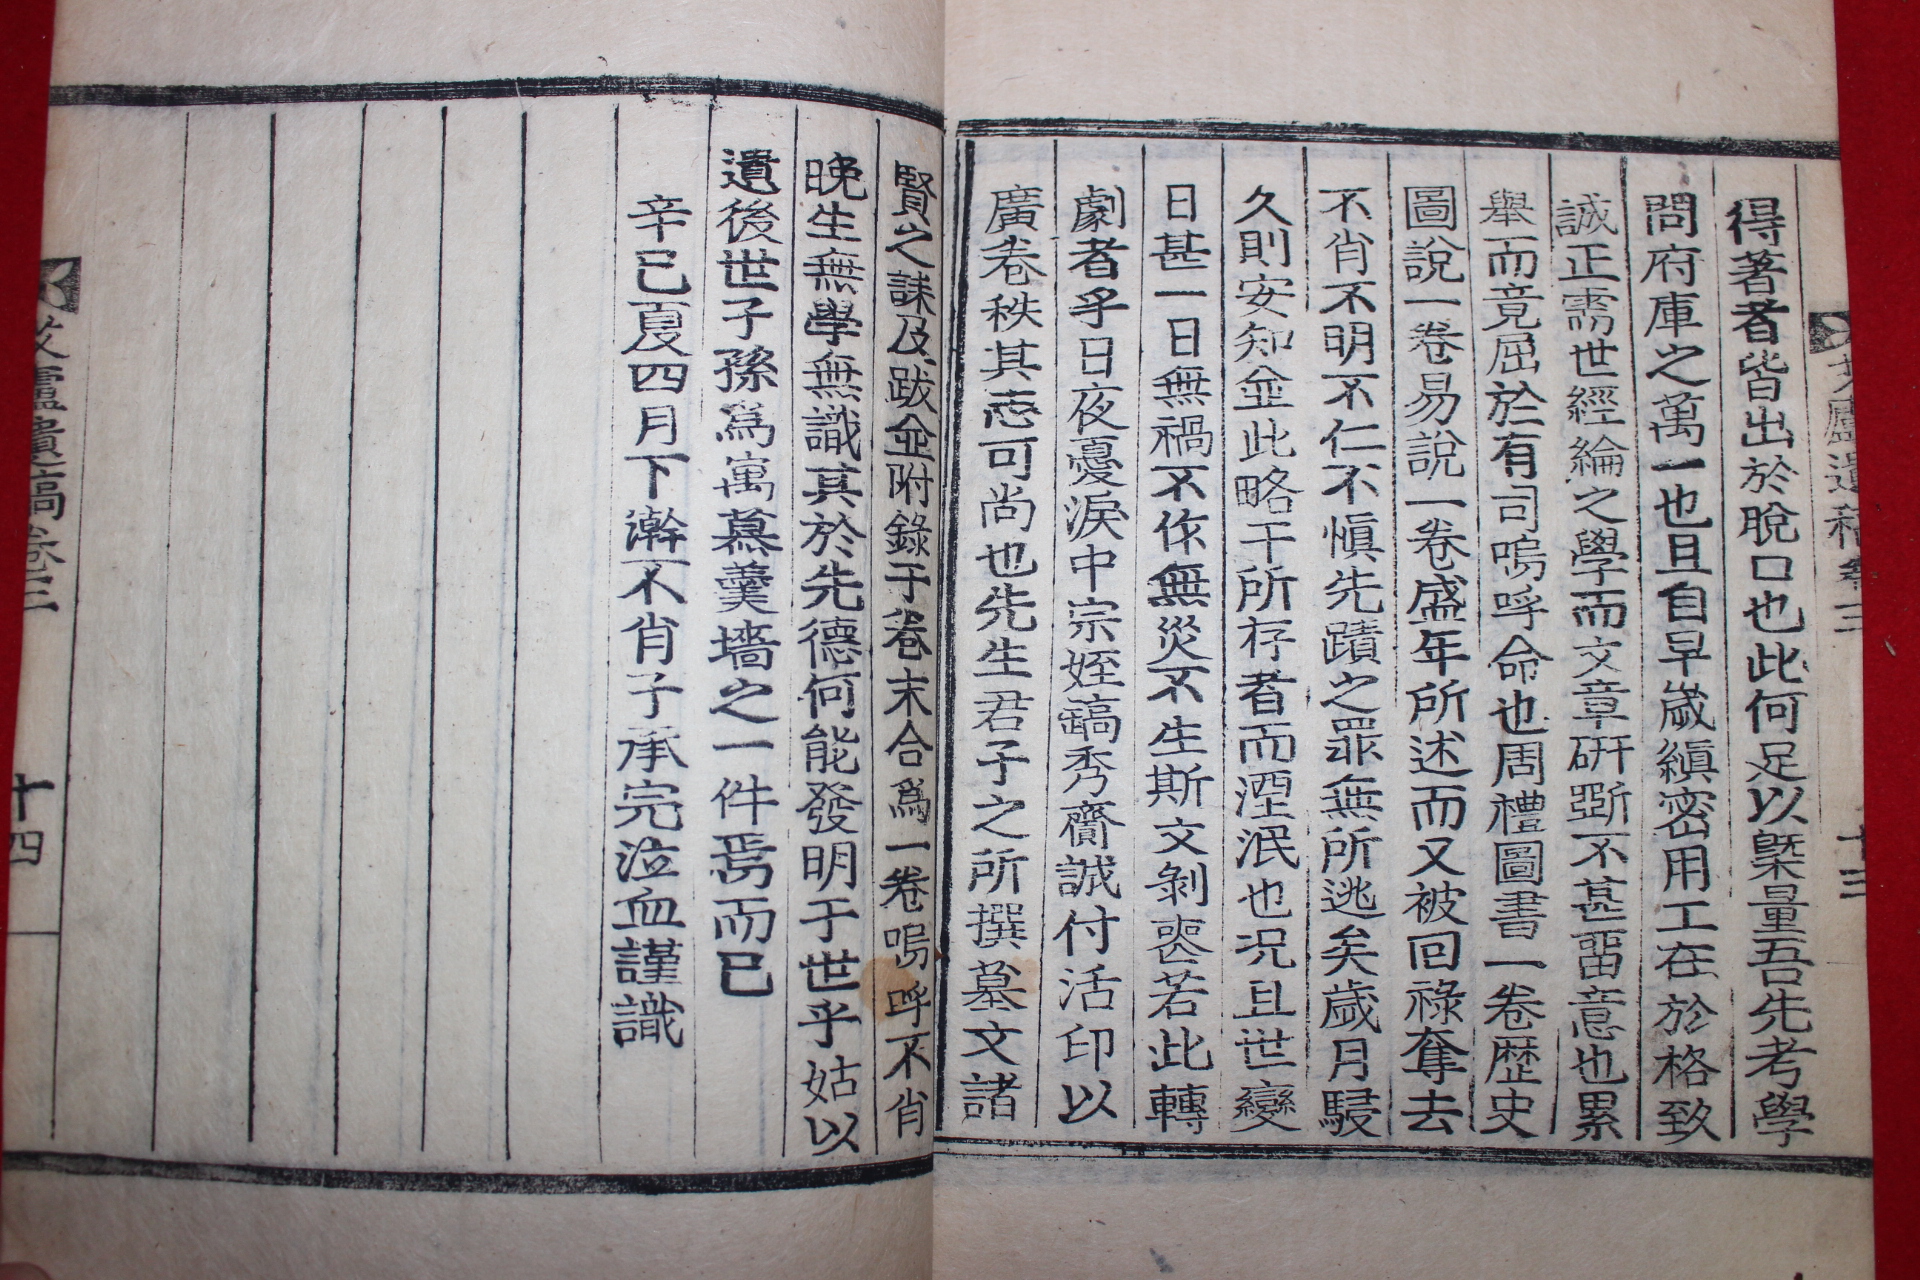 得著者皆出於脫口也此何足以槩量吾先考學
問府庫之萬一也且自早歲縝密用工在於格致
誠正需世經綸之學而文章硏斲不甚畱意也累
擧而竟屈於有司嗚呼命也周禮圖書一卷歷史
圖說一卷易說一卷盛年所述而又被回祿奪去
不肖不明不仁不愼先蹟之罪無所逃矣歲月駸
久則安知並此略干所存者而湮泯也况且世變
日甚一日無禍不作無災不生斯文剝喪若此轉
劇者乎日夜憂淚中宗姪鎬秀齎誠付活印以
廣卷秩其志可尚也先生君子之所撰墓文諸
賢之誄及跋並附錄于卷末合爲一卷嗚呼不肖
晚生無學無識其於先德何能發明于世乎姑以
遺後世子孫爲寓慕羹墻之一件焉而已
辛巳夏四月下澣不肖子承完泣血謹識
廬遺稿卷三
十三
廬遺稿卷三
十四